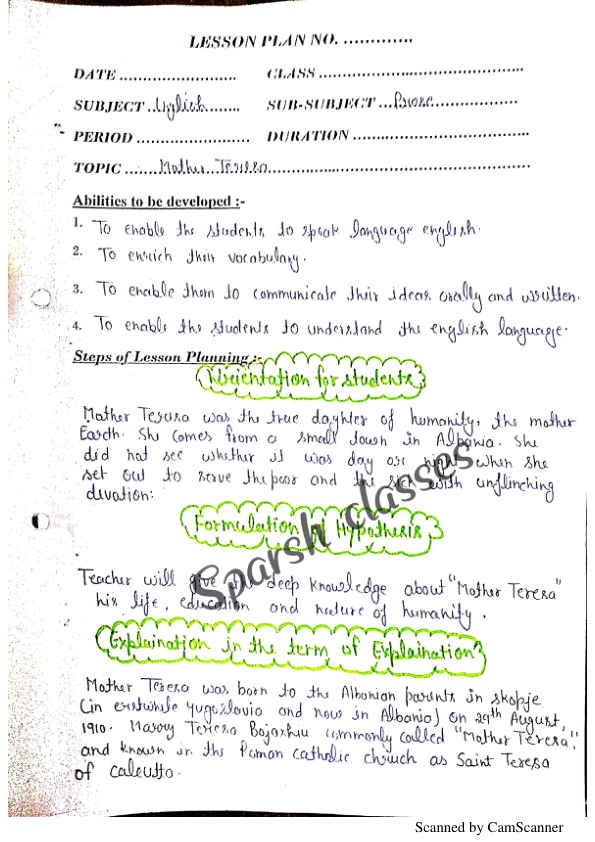 LESSON PLAN NO. .............
DATE ........................ CLASS ..........................................
SUBJECT ..English........ SUB-SUBJECT ...Prose..................
PERIOD ....................... DURATION ....................................
TOPIC .......Mother Teresa..........................................................
Abilities to be developed :-
1. To enable the students to speak language english.
2. To enrich their vocabulary.
3. To enable them to communicate their ideas orally and written.
4. To enable the students to understand the english language.
Steps of Lesson Planning :-
Orientation for students
Mother Teresa was the true daughter of humanity, the mother
Earth. She comes from a small town in Albania. She
did not see whether it was day or night when she
set out to serve the poor and the sick with unflinching
devation:
Formulation of Hypothesis
Teacher will give the deep knowledge about "Mother Teresa"
his life, education and nature of humanity.
Explaination in the term of Explaination
Mother Teresa was born to the Albanian parents in skopje
(in erstwhile Yugoslavia and now in Albania) on 29th August,
1910. Marry Teresa Bojaxhiu commonly called "Mother Teresa".
and known in the Roman catholic church as Saint Teresa
of calcutta.
Sparsh classes
Scanned by CamScanner